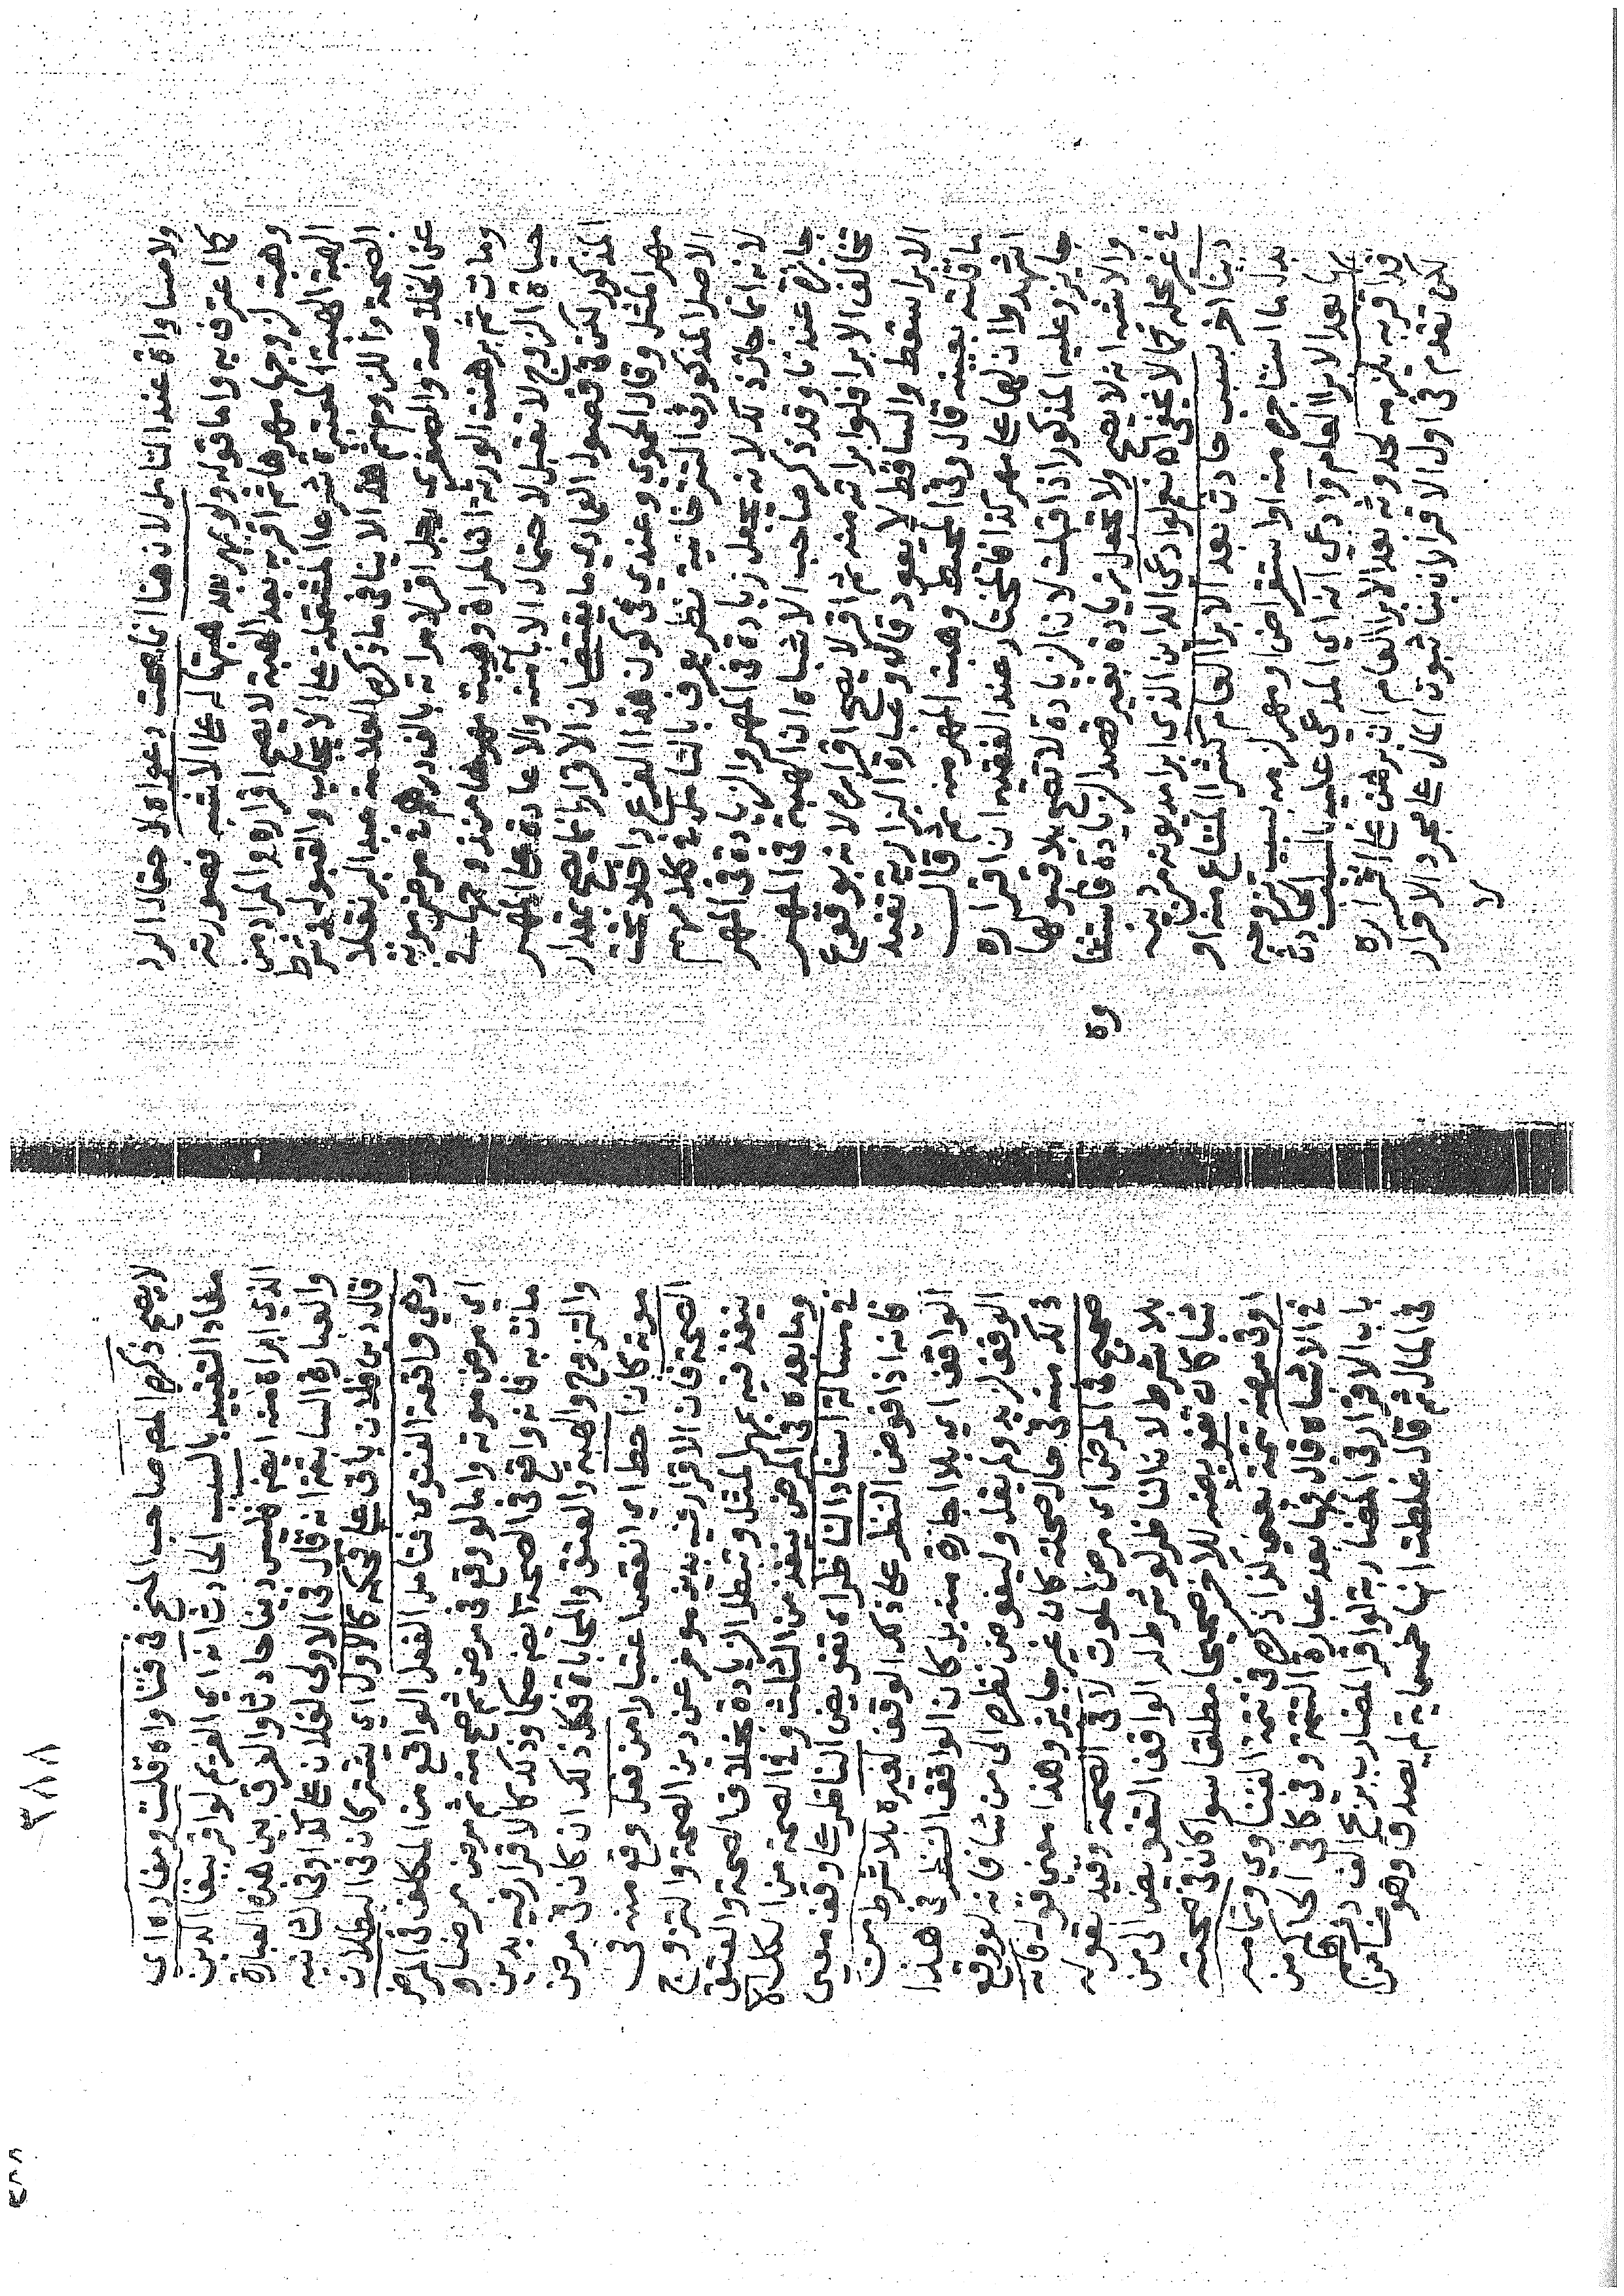 ولا مساواة عند التامل لان هنا انما صحت دعواه لاحتمال الرد
كما اعترف به واما قوله ولو بمهر بعد هبتها له على الاشبه فصورته
وهبته لزوجها مهرها ثم اقر به بعد الهبة لا يصح اقراره والمراد من
الهبة الهبة المعتبرة شرعا المشتملة على الايجاب والقبول وشرط
الصحة واللزوم ثم هذا لا ينافي ما ذكره العلامة عبد البر نقلا
عن الخلاصة والصغرى رجل اقر لامراته بالف درهم في مرض موته
ومات ثم برهنت الورثة ان المراة وهبت مهرها من زوجها في
حياة الزوج لا تقبل لاحتمال الابانة والاعادة على المهر
المذكور لكن في فصول العمادي ما يقتضي ان الاقرار انما يصح بمقدار
مهر المثل وقال الحموي وعندي في كون هذا الفرع داخلا تحت
الاصل المذكور في التترخانية نظر يعرف بالتامل في كلامهم
لانه انما جاز ذلك لانه يجعل زيادة في المهر والزيادة في المهر
جايزة عندنا وقد ذكر صاحب الاشباه ان الهبة في المهر
تخالف الابرا فلو ابراته منه ثم اقر لا يصح اقراره لانه بوقوع
الابرا سقط والساقط لا يعود قالا وعبارة البزازية تفيد
ما قلته بعينه قال وفي المحيط وهبت المهر منه ثم قال
اشهدوا ان لها علي مهر كذا فالمختار عند الفقيه ان اقراره
جايز وعليه المذكور اذا قبلت لان الزيادة لا تصح بلا قبولها
والاشبه انه لا يصح ولا تجعل زيادة بغير قصد الزيادة فاستثنا
وه
في غير محله كما لا يخفى اه نعم لو ادعى الداين الذي ابرا مديونه من دينه
دينا اخر بسبب حادث بعد الابرا العام كشرا المتاع منه او
بدل ما استاجره منه او استقراض او مهر لزمه بسبب تزوجه
بها بعد الابرا العام وادعى انه اي المدعى عليه بالسبب الحادث
قد اقر به يلزمه لحدوثه بعد الابرا العام ان برهن على اقراره
لكن تقدم في اول الاقرار لان بنا ثبوت المال على مجرد الاقرار
لا
٣٨٨
لا يصح ذكره المص صاحب المنح في فتاواه قلت ومفاده اي
مفاد التقييد بالسبب الحادث انه اي الغريم لو اقر ببقا الدين
الذي ابراه منه ايضه فليس دينا حادثا والفرق بين هذه العبارة
والعبارة السابقة انه قال في الاولى لفلان علي كذا وفي الثانيه
قال دين فلان باق علي فحكمه كالاول اي يشتركان في البطلان
وهي واقعة الفتوى فتامل الفعل الواقع من المكلف في المرض
اي مرض موته واما لو وقع في مرض ثم صح منه ثم مرض مرضا و
مات به فانه واقع في الصحة ايضه حكما وذلك كالاقرار فيه بدين
والتزوج والهبه والعتق والمحاباة فكل ذلك ان كان في مرض
موته كان احط اي انقص اعتبارا من فعل وقع منه في
الصحة فان الاقرار فيه بدين موخر عن دين الصحة والتزوج
ينفذ فيه بمهر المثل وتبطل الزيادة بخلاف الصحة والعتق
وما بعده في المرض ينفذ من الثلث وفي الصحة من الكل الا
في مسالة اسناد الناظر اه تفويض الناظر على وقف معين
فانه اذا فوض النظر على ذلك الوقف لغيره بلا شرط من
الواقف اي بلا اجازة منه بل كان الواقف النظر في هذا
الوقف لزيد ولم يقل وليفوض نظره الى من شا فانه لو وقع
ذلك منه في حال صحته كان غير جايز وهذا معنى قوله فانه
صحيح في المرض اى مرض الموت لا في الصحة وقيد بقوله
بلا شرط لان الناظر لو شرط له الواقف التفويض الى من
شا كان تفويضه للاخر صحيحا مطلقا سوا كان في صحته
او في مرضه تتمة يعني لذا ذكره في تتمة الفتاوي وتمامه
في الاشباه قال فيها بعد عبارة التتمة وفي كافي الحاكم من
باب الاقرار في المضاربة لو اقر المضارب بربح الف درهم
في المال ثم قال غلطت انها خمسماية لم يصدق وهو ضامن
٣٨٨